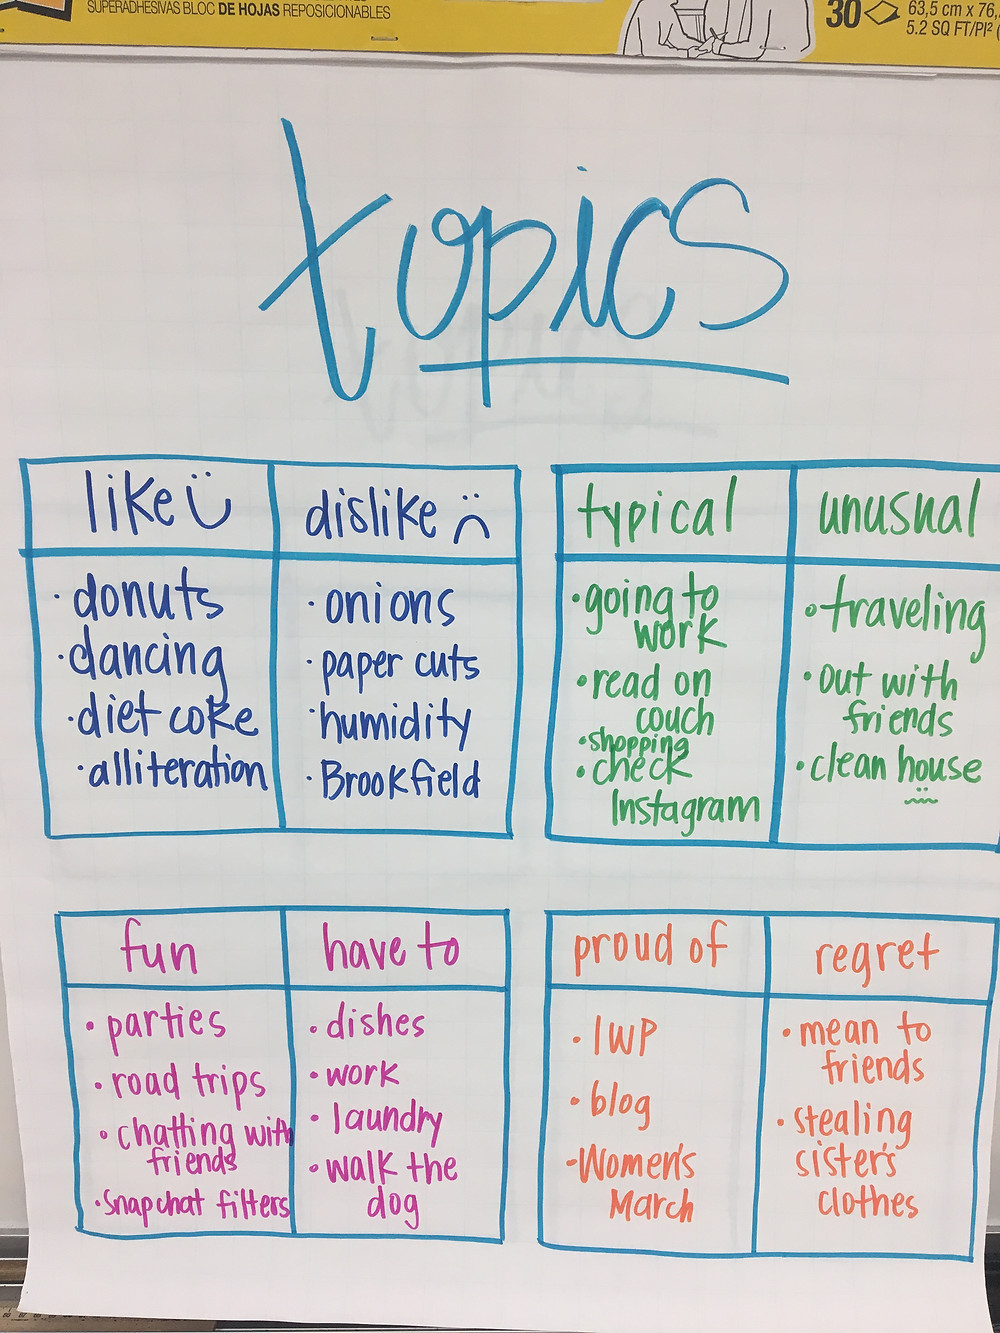 SUPERADHESIVAS BLOC DE HOJAS REPOSICIONABLES
30
63,5 cm x 76,
5.2 SQ FT/PI² (
topics
like
dislike
donuts
dancing
diet coke
alliteration
onions
paper cuts
humidity
Brookfield
typical
unusual
going to
work
read on
couch
shopping
check
Instagram
traveling
out with
friends
clean house
fun
have to
parties
road trips
chatting with
friends
snapchat filters
dishes
work
laundry
walk the
dog
proud of
regret
IWP
blog
Women's
March
mean to
friends
stealing
sister's
clothes